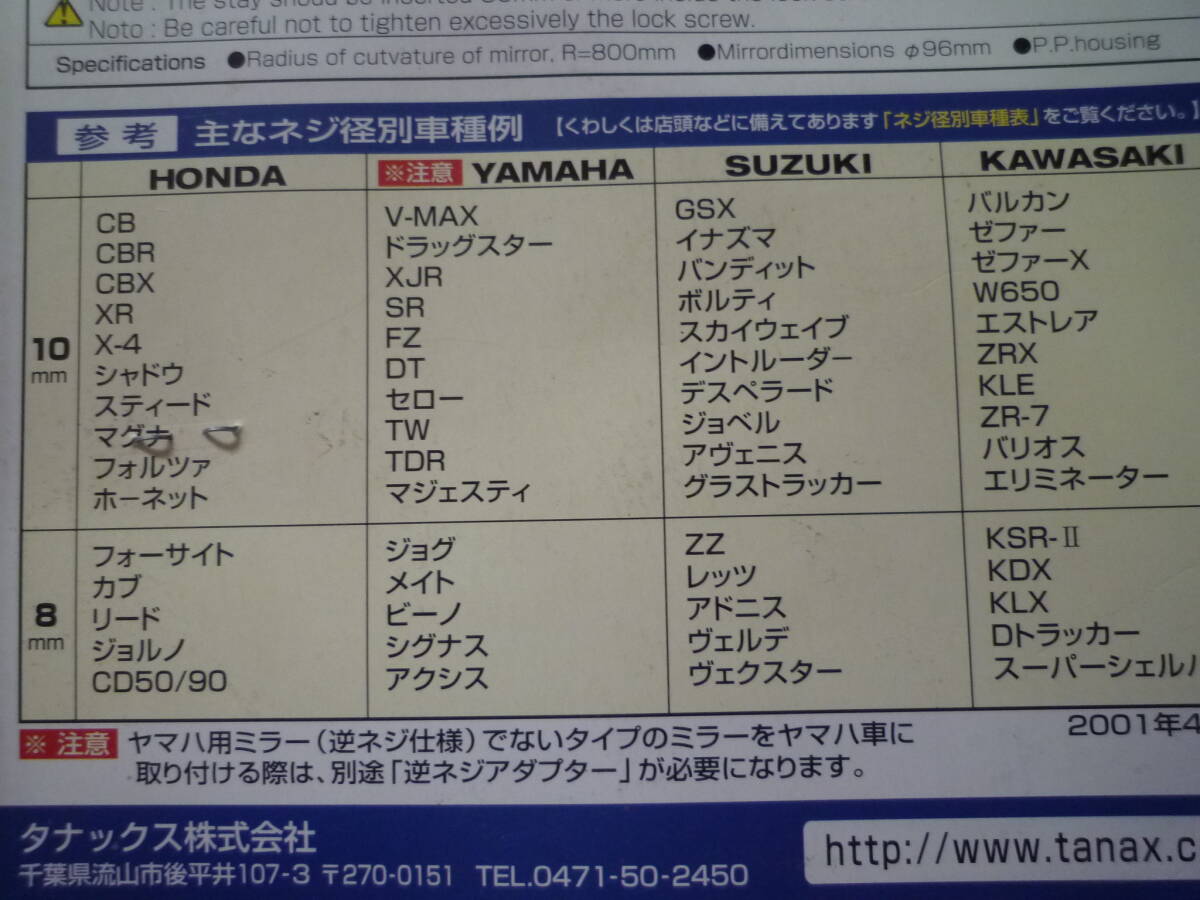 Note : The stay
Noto : Be careful not to tighten excessively the lock screw.
Specifications ●Radius of cutvature of mirror, R=800mm ●Mirrordimensions φ96mm ●P.P.housing
参考 主なネジ径別車種例 【くわしくは店頭などに備えてあります「ネジ径別車種表」をご覧ください。】
HONDA ※注意 YAMAHA SUZUKI KAWASAKI
10
mm
CB
CBR
CBX
XR
X-4
シャドウ
スティード
マグナ
フォルツァ
ホーネット
V-MAX
ドラッグスター
XJR
SR
FZ
DT
セロー
TW
TDR
マジェスティ
GSX
イナズマ
バンディット
ボルティ
スカイウェイブ
イントルーダー
デスペラード
ジョベル
アヴェニス
グラストラッカー
バルカン
ゼファー
ゼファーX
W650
エストレア
ZRX
KLE
ZR-7
バリオス
エリミネーター
8
mm
フォーサイト
カブ
リード
ジョルノ
CD50/90
ジョグ
メイト
ビーノ
シグナス
アクシス
ZZ
レッツ
アドニス
ヴェルデ
ヴェクスター
KSR-Ⅱ
KDX
KLX
Dトラッカー
スーパーシェル
※ 注意 ヤマハ用ミラー(逆ネジ仕様)でないタイプのミラーをヤマハ車に
取り付ける際は、別途「逆ネジアダプター」が必要になります。
2001年4
タナックス株式会社
千葉県流山市後平井107-3 〒270-0151 TEL.0471-50-2450
http://www.tanax.c